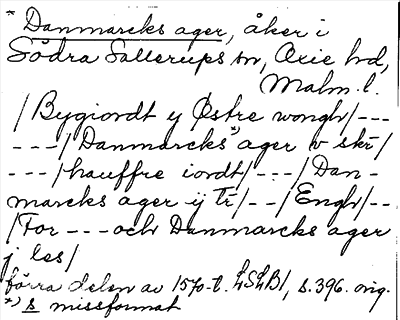 * Danmarcks ager, åker i
Södra Sallerups sn, Oxie hd,
Malm. l.
/Bygiordt y Østre wongh/---
---/Danmarcks*) ager v skr/
---/hauffre iordt/---/Dan-
marcks ager ij Tr/--/Engh/--
/For --- och Danmarcks ager
j les/
förra delen av 1570-t. LSLB1, s. 396. orig.
*) s missformat